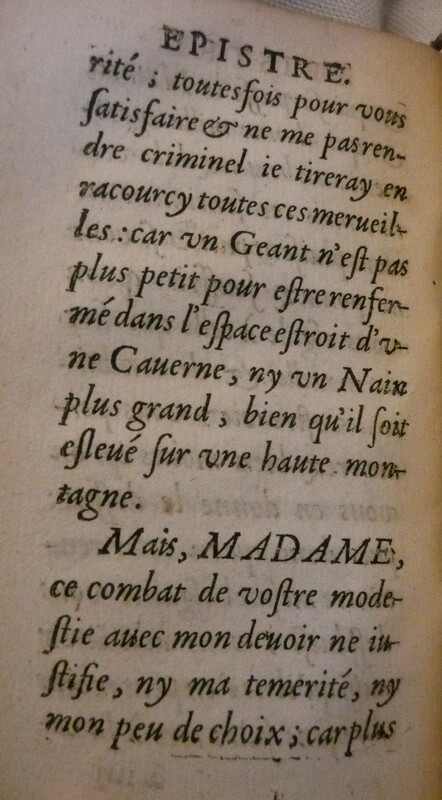 EPISTRE.
rité ; toutesfois pour vous
ſatisfaire & ne me pas ren-
dre criminel ie tireray en
racourcy toutes ces merueil-
les : car vn Geant n'eſt pas
plus petit pour eſtre renfer-
mé dans l'eſpace eſtroit d'v-
ne Cauerne, ny vn Nain
plus grand, bien qu'il ſoit
eſleué ſur vne haute mon-
tagne.
Mais, MADAME,
ce combat de voſtre mode-
ſtie auec mon deuoir ne iu-
ſtifie, ny ma temerité, ny
mon peu de choix ; car plus